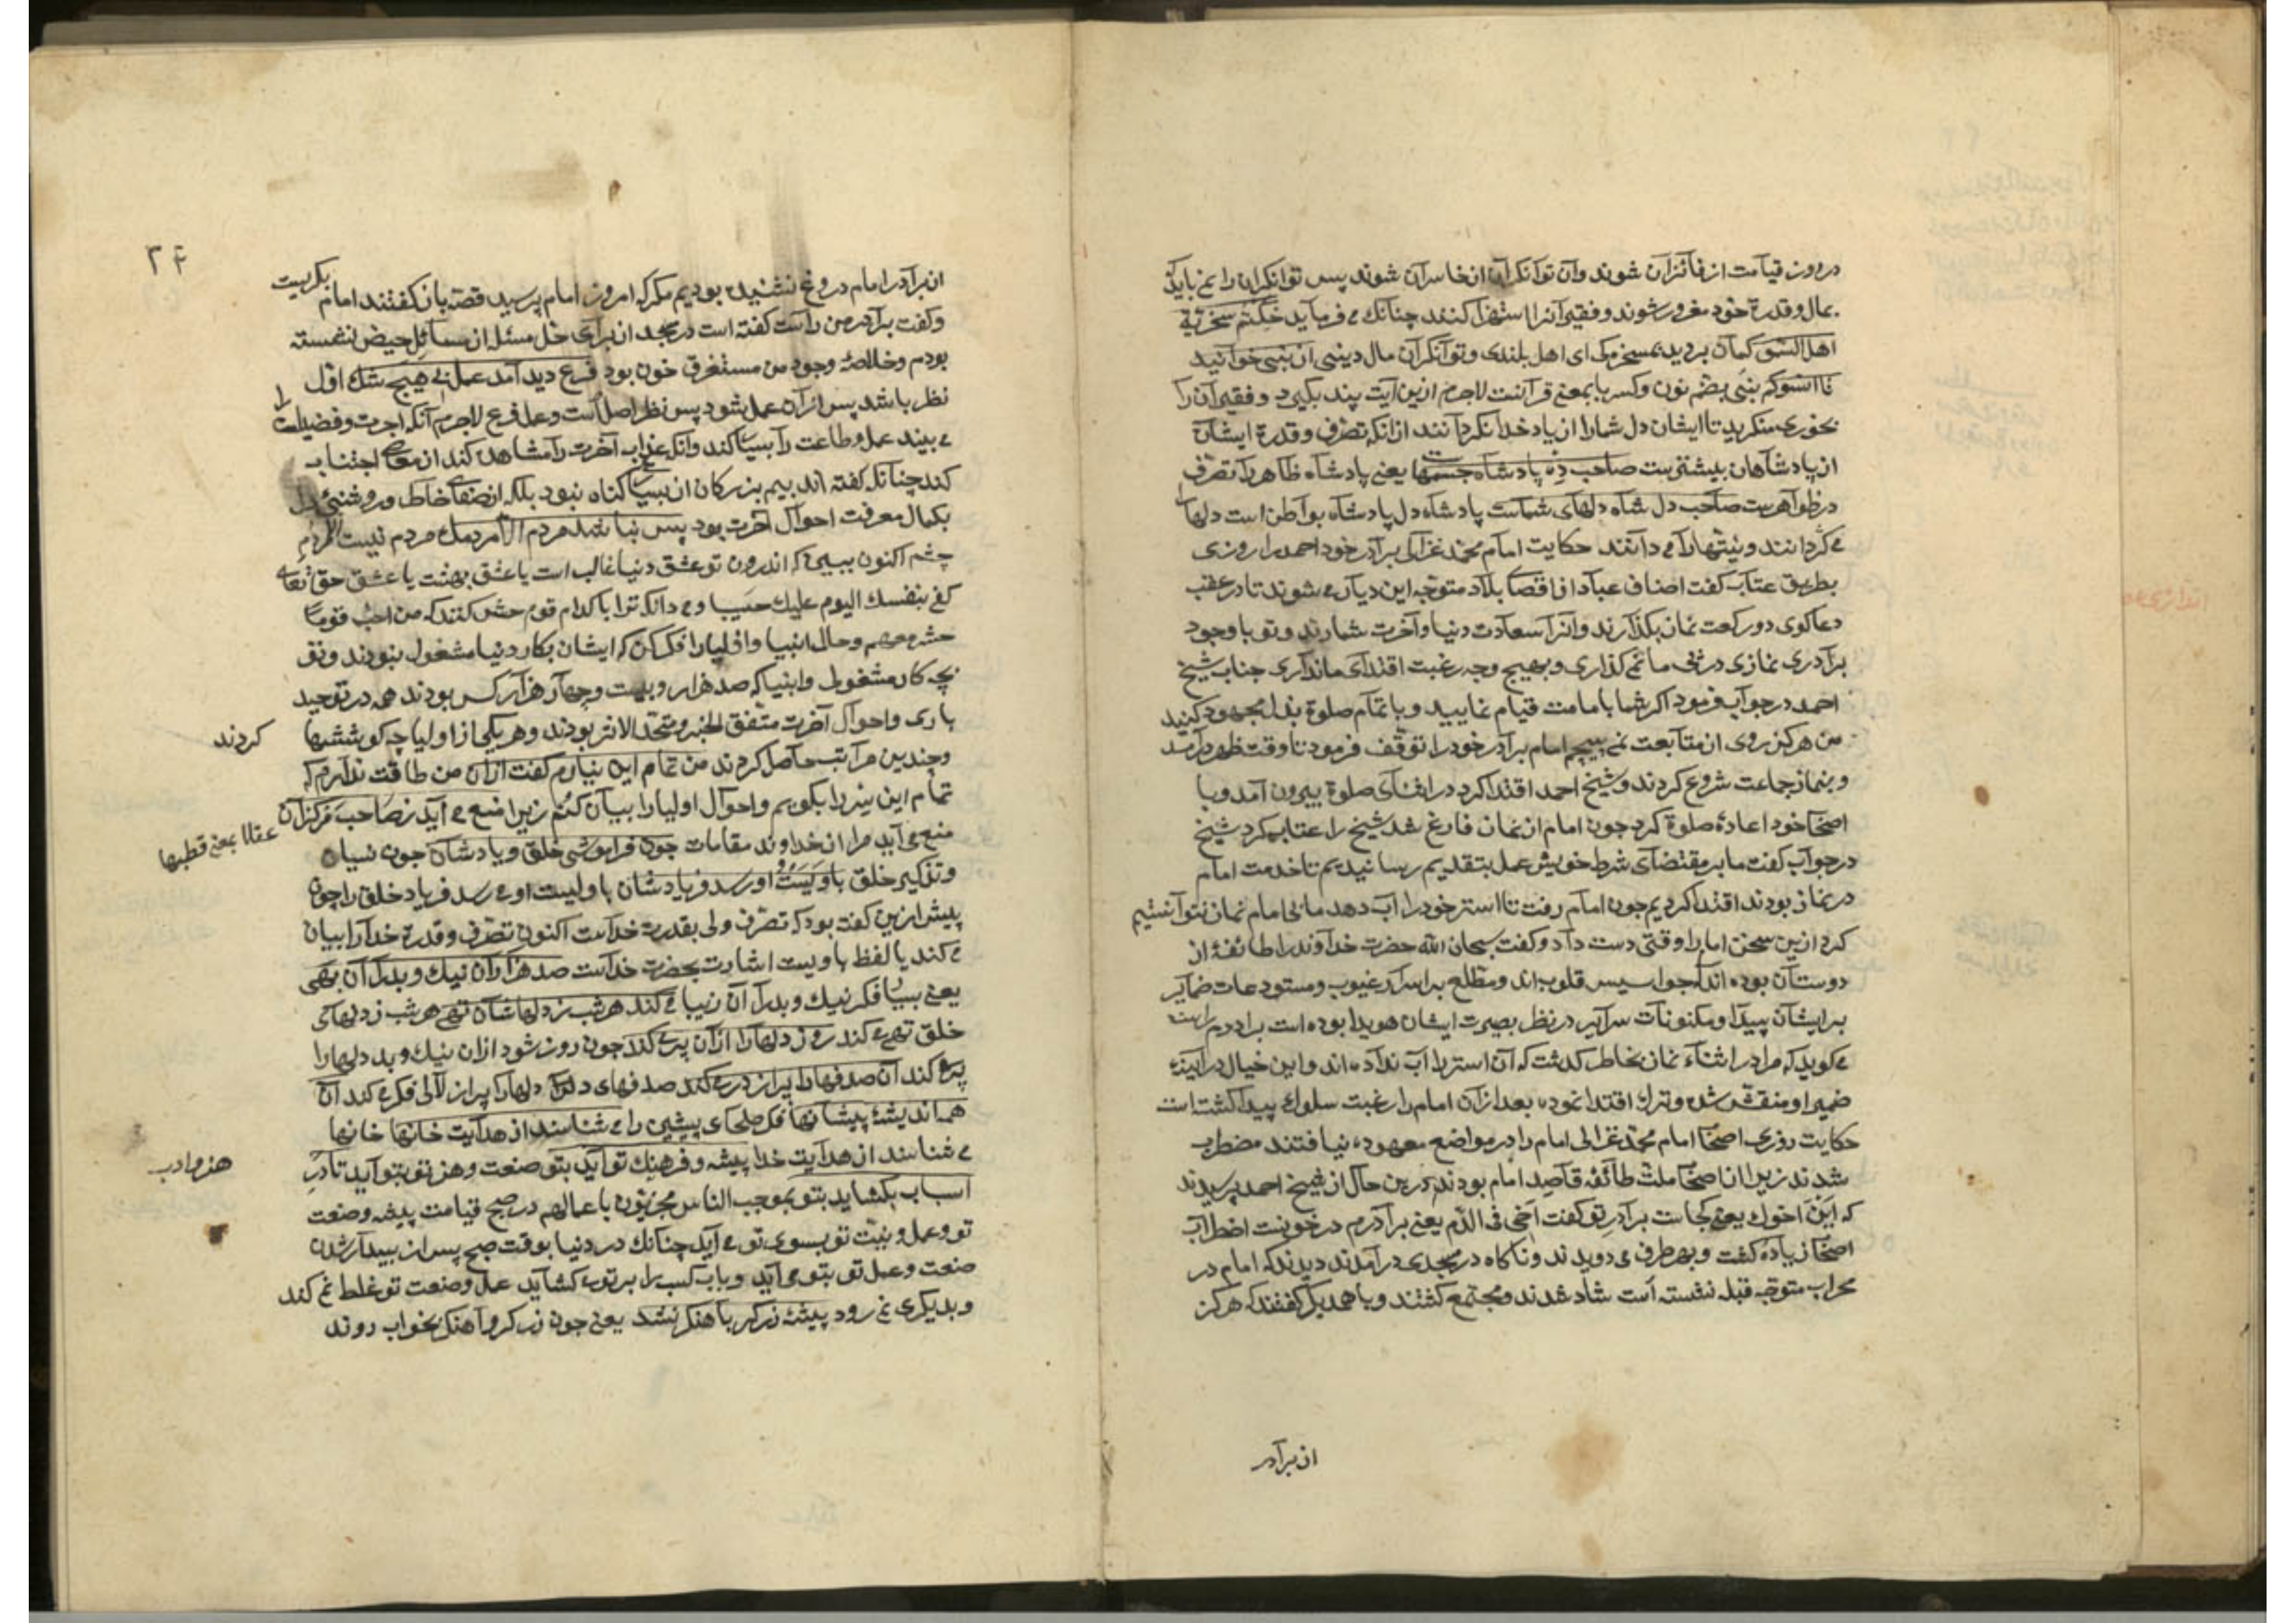 در روز قیامت از فائزان شوند وآن توانکران از خاسران شوند پس توانکران را نمی باید
بمال وقدرة خود مغرور شوند وفقیرانرا استهزا کنند چنانك می فرماید خذتم سخریة
اهل السمو کمان بردید بمسخرمکی ای اهل بلندی وتوانکران مال دنیی از نبی خوانید
تا انسوکم بنبی بضم نون وکسر با بمعنی قرآنست لاجرم ازین آیت پند بکیرد وفقیران را
بخوری منکرید تا ایشان دل شمارا از یاد خدا نکردانند از انکه تصرف وقدرة ایشان
از پادشاهان بیشترست صاحب ده پادشاه جسمهاست یعنی پادشاه ظاهر را تصرف
در ظواهرست صاحب دل شاه دلهای شماست پادشاه دل پادشاه بواطن است دلها را
می کردانند ونیتهارا می دانند حکایت امام محمد غزالی برادر خود احمد را روزی
بطریق عتاب کفت اصناف عباد از اقصای بلاد متوجه این دیار می شوند تا در عقب
دعاکوی دو رکعت نماز بکذارند وانرا سعادت دنیا وآخرت شمارند وتو با وجود
برادری نمازی در پی ما نمی کذاری وبهیچ وجه رغبت اقتدای ما نداری جناب شیخ
احمد در جواب فرمود اکر شما بامامت قیام نمایید وباتمام صلوة بذل مجهود کنید
من هرکز روی از متابعت نمی پیچم امام برادر خود را توقف فرمود تا وقت ظهر درآمد
وبنماز جماعت شروع کردند وشیخ احمد اقتدا کرد در اثنای صلوة بیرون آمد وبا
اصحاب خود اعادهٔ صلوة کرد چون امام از نماز فارغ شد شیخ را عتاب کرد شیخ
در جواب کفت ما بر مقتضای شرط خویش عمل بتقدیم رسانیدیم تا خدمت امام
در نماز بودند اقتدا کردیم چون امام رفت تا استر خود را آب دهد ما بی امام نماز نتوانستیم
کرد ازین سخن امام را وقتی دست داد وکفت سبحان الله حضرت خداوند را طائفهٔ از
دوستان بوده اند که جواسیس قلوب اند ومطلع بر اسرار غیوب ومستودعات ضمایر
بر ایشان پیدا ومکنونات سرایر در نظر بصیرت ایشان هویدا بوده است برادرم راست
می کوید که مرا در اثناء نماز بخاطر کذشت که آن استر را آب نداده اند واین خیال در آیینهٔ
ضمیر او منقش شده وترك اقتدا نموده بعد از آن امام را رغبت سلوك پیدا کشت است
حکایت روزی اصحاب امام محمد غزالی امام را در مواضع معهوده نیافتند مضطرب
شدند زیرا از اصحاب ملت طائفه قاصد امام بودند درین حال از شیخ احمد پرسیدند
که این اخوك یعنی کجاست برادر تو کفت اخی فی الدم یعنی برادرم در خونست اضطراب
اصحاب زیاده کشت وبهر طرف می دویدند وناکاه در مسجدی درآمدند دیدند که امام در
محراب متوجه قبله نشسته است شاد شدند ومجتمع کشتند وبا همدیکر کفتند که هرکز
از برادر
۲۴
از برادر امام دروغ نشنیده بودیم مکر که امروز امام پرسید قصه باز کفتند امام بکریست
وکفت برادر من راست کفته است در مسجد از برای حل مسئله از مسائل حیض نشسته
بودم وخلاصهٔ وجود من مستغرق خون بود فرع دید آمد عمل بی هیچ شك اول
نظر باشد پس از آن عمل شود پس نظر اصل است وعمل فرع لاجرم آنکه اجرت وفضیلت را
می بیند عمل وطاعت را بسیار کند وانکه عذاب آخرت را مشاهده کند از معاصی اجتناب
کند چنانکه کفته اند بیم بزرکان از بسیاری کناه نبود بلکه از صفای خاطر وروشنئ دل
بکمال معرفت احوال آخرت بود پس نباشد مردم الا مردمك مردم نیست الا مردم
چشم اکنون ببینی که اندرون تو عشق دنیا غالب است یا عشق بهشت یا عشق حق تعالی
کفی بنفسك الیوم علیك حسیبا ومی دانکه ترا با کدام قوم حشر کنند که من احب قوما
حشر معهم وحال انبیا واولیا را فکر کن که ایشان بکار دنیا مشغول نبودند وتو
بچه کار مشغولی وانبیا که صد هزار وبیست وچهار هزار کس بودند همه در توحید
باری واحوال آخرت متفق الخبر ومتحد الاثر بودند وهر یکی از اولیا چه کوششها کردند
وچندین مراتب حاصل کردند من تمام این نیارم کفت از آن من طاقت ندارم که
تمام این سر را بکویم واحوال اولیا را بیان کنم زیرا منع می آید ز صاحب مرکزان
عقلا بمعنی قطبها
منع می آید مرا از خداوند مقامات چون فراموشی خلق ویادشان چون نسیان
وتذکیر خلق با ویست او رسد فریادشان با ولیست او می رسد فریاد خلق را چون
پیش ازین کفت بود که تصرف ولی بقدرت خداست اکنون تصرف وقدرة خدا را بیان
می کند یا لفظ با ویست اشارت بحضرت خداست صد هزاران نیك وبد را آن بهی
یعنی بسیار فکر نیك وبد را آن زیبا می کند هر شب ز دلهاشان تهی هر شب ز دلهای
خلق تهی می کند روز دلها را از آن پر می کند چون روز شود از ان نیك وبد دلها را
پر می کند آن صدفها را پر از در می کند صدفهای دلها را پر از لآلی فکر می کند آن
همه اندیشهٔ پیشانها فکرهای پیشین را می شناسند از هدایت خانها خانها
می شناسند از هدایت خدا پیشه وفرهنك تو آید بتو صنعت وهنر تو بتو آید تا در
هنر وادب
اسباب بکشاید بتو بموجب الناس مجزیون باعمالهم در صبح قیامت پیشه وصنعت
تو وعمل ونیت تو بسوی تو می آید چنانك در دنیا بوقت صبح پس از بیدار شدن
صنعت وعمل تو بتو می آید وباب کسب را بر تو می کشاید عمل وصنعت تو غلط نمی کند
وبدیکری نمی رود پیشهٔ زرکر بآهنکر نشد یعنی چون زرکر وآهنکر بخواب روند